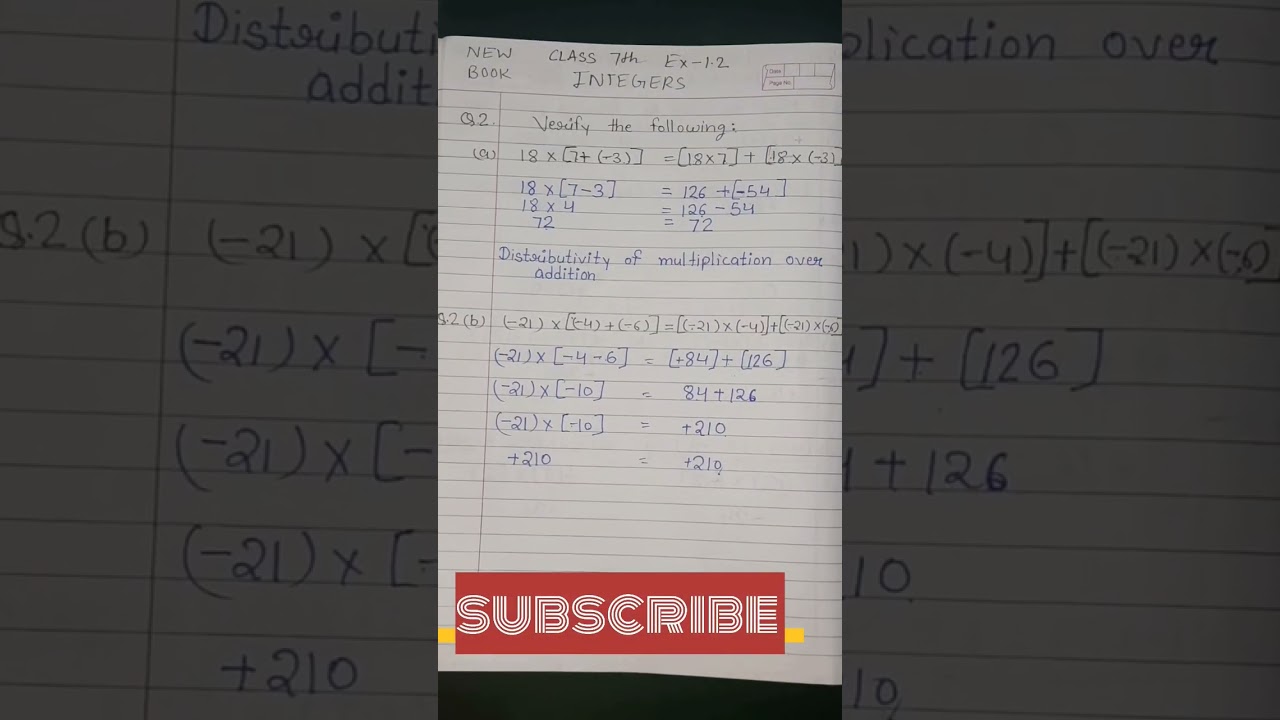 NEW CLASS 7th Ex-1.2
BOOK INTEGERS
Date
Page No.
Q.2. Verify the following:
(a) 18 × [7+(-3)] = [18×7] + [18×(-3)]
18 × [7-3] = 126 + [-54]
18 × 4 = 126 - 54
72 = 72
Distributivity of multiplication over
addition
Q.2(b) (-21) × [(-4) + (-6)] = [(-21) × (-4)] + [(-21) × (-6)]
(-21) × [-4-6] = [+84] + [126]
(-21) × [-10] = 84 + 126
(-21) × [-10] = +210
+210 = +210
SUBSCRIBE